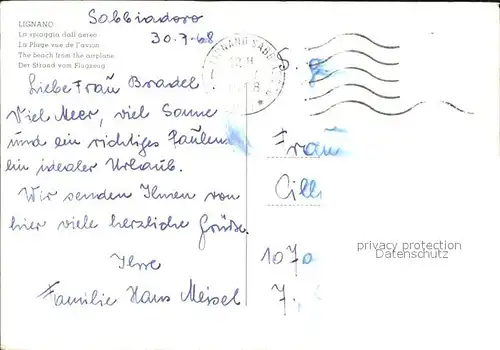 LIGNANO
La spiaggia dall'aereo
La Plage vue de l'avion
The beach from the airplane
Der Strand vom Flugzeug
Sabbiadoro
30.7.68
LIGNANO SABB
Liebe Frau Bradel
Viel Meer, viel Sonne
und ein richtiges Faulenz
ein idealer Urlaub.
Wir senden Ihnen von
hier viele herzliche Grüße.
Ihre
Familie Hans Meisel
Frau
Cilli
1070
7.
privacy protection
Datenschutz